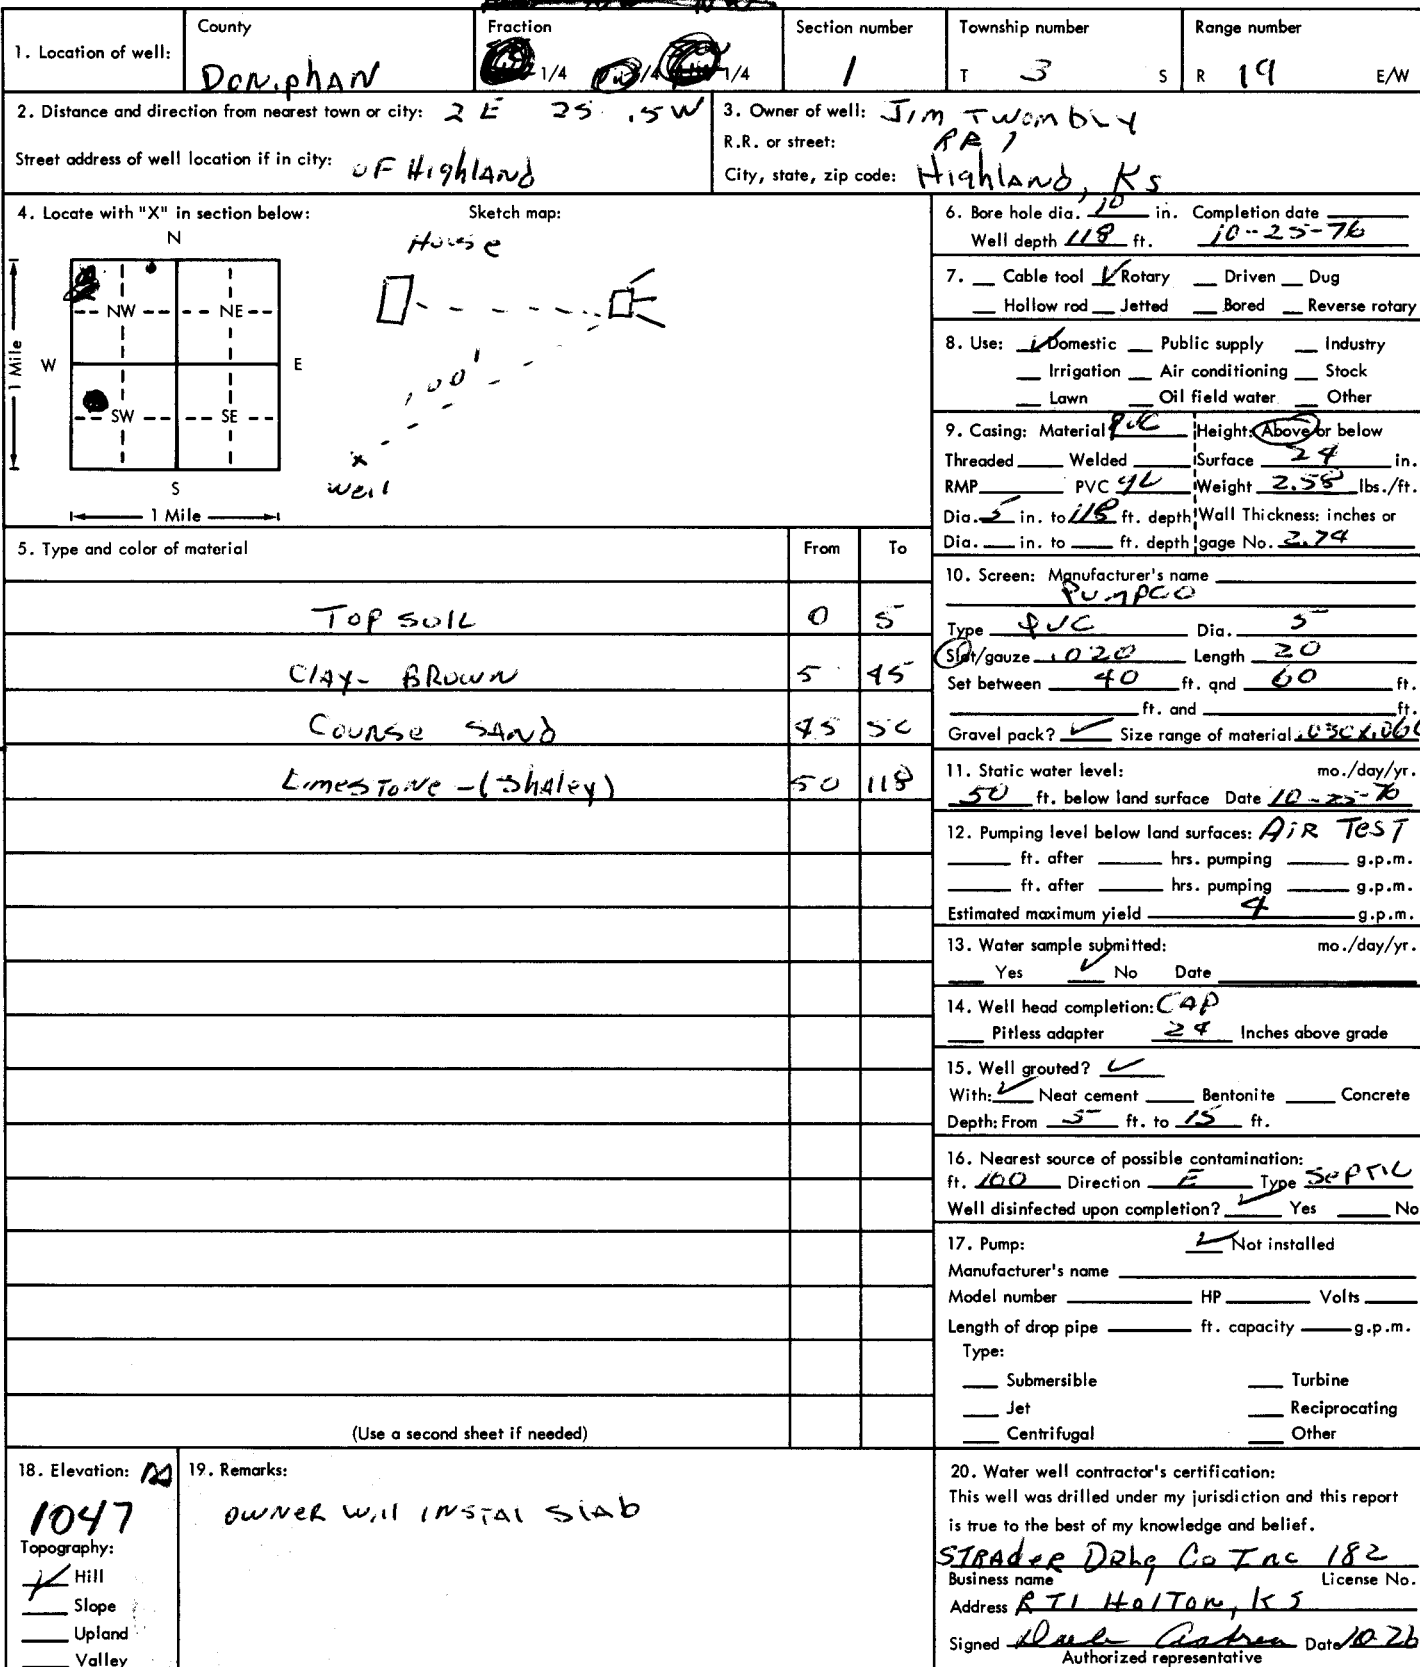 1. Location of well:
County
Doniphan
Fraction
1/4 1/4 1/4
Section number
1
Township number
T 3 S
Range number
R 19 E/W
2. Distance and direction from nearest town or city: 2 E 2S .5W
Street address of well location if in city: OF Highland
3. Owner of well: Jim Twombly
R.R. or street: RR 1
City, state, zip code: Highland, Ks
4. Locate with "X" in section below:
N
NW NE
W E
SW SE
S
1 Mile
1 Mile
Sketch map:
House
100'
x
Well
5. Type and color of material From To
Top soil 0 5
Clay- Brown 5 45
Course Sand 45 50
Limestone -(Shaley) 50 118
(Use a second sheet if needed)
6. Bore hole dia. 10 in. Completion date
Well depth 118 ft. 10-25-76
7. Cable tool ✓ Rotary Driven Dug
Hollow rod Jetted Bored Reverse rotary
8. Use: ✓ Domestic Public supply Industry
Irrigation Air conditioning Stock
Lawn Oil field water Other
9. Casing: Material PVC Height: Above or below
Threaded Welded Surface 24 in.
RMP PVC Weight 2.58 lbs./ft.
Dia. 5 in. to 118 ft. depth Wall Thickness: inches or
Dia. in. to ft. depth gage No. 2.74
10. Screen: Manufacturer's name
Pumpco
Type PVC Dia. 5
Slot/gauze .020 Length 20
Set between 40 ft. and 60 ft.
ft. and ft.
Gravel pack? ✓ Size range of material .030x.060
11. Static water level: mo./day/yr.
50 ft. below land surface Date 10-25-76
12. Pumping level below land surfaces: AIR TEST
ft. after hrs. pumping g.p.m.
ft. after hrs. pumping g.p.m.
Estimated maximum yield 4 g.p.m.
13. Water sample submitted: mo./day/yr.
Yes ✓ No Date
14. Well head completion: CAP
Pitless adapter 24 Inches above grade
15. Well grouted? ✓
With: ✓ Neat cement Bentonite Concrete
Depth: From 5 ft. to 15 ft.
16. Nearest source of possible contamination:
ft. 100 Direction E Type Septic
Well disinfected upon completion? ✓ Yes No
17. Pump: ✓ Not installed
Manufacturer's name
Model number HP Volts
Length of drop pipe ft. capacity g.p.m.
Type:
Submersible Turbine
Jet Reciprocating
Centrifugal Other
18. Elevation:
1047
Topography:
✓ Hill
Slope
Upland
Valley
19. Remarks:
OWNER Will INSTAl SlAb
20. Water well contractor's certification:
This well was drilled under my jurisdiction and this report
is true to the best of my knowledge and belief.
STRAder Drlg Co Inc 182
Business name License No.
Address RT1 HolTon, KS
Signed Date 10-26
Authorized representative